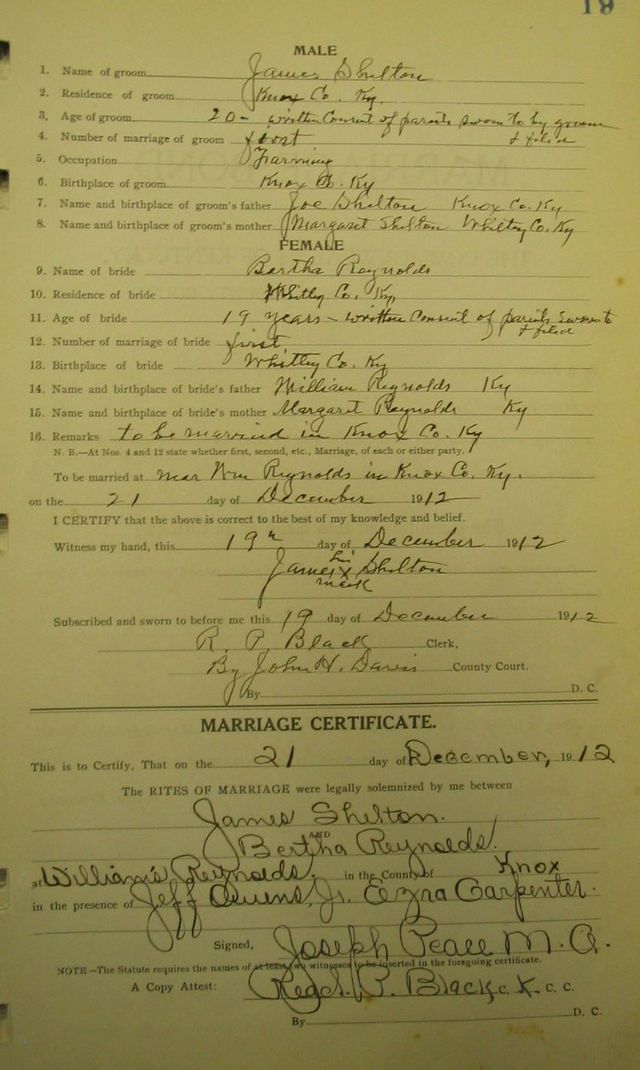 19
MALE
1. Name of groom James Shelton
2. Residence of groom Knox Co. Ky.
3. Age of groom 20 - written consent of parents sworn to by groom
& filed
4. Number of marriage of groom first
5. Occupation Farming
6. Birthplace of groom Knox Co. Ky
7. Name and birthplace of groom's father Joe Shelton Knox Co. Ky
8. Name and birthplace of groom's mother Margaret Shelton Whitley Co. Ky
FEMALE
9. Name of bride Bertha Reynolds
10. Residence of bride Whitley Co. Ky,
11. Age of bride 19 years - written consent of parents sworn to
& filed
12. Number of marriage of bride first
13. Birthplace of bride Whitley Co. Ky
14. Name and birthplace of bride's father William Reynolds Ky
15. Name and birthplace of bride's mother Margaret Reynolds Ky
16. Remarks to be married in Knox Co. Ky
N. B.—At Nos. 4 and 12 state whether first, second, etc., Marriage, of each or either party.
To be married at near Wm Reynolds in Knox Co. Ky.
on the 21 day of December 1912
I CERTIFY that the above is correct to the best of my knowledge and belief.
Witness my hand, this 19th day of December 1912
his
James x Shelton
mark
Subscribed and sworn to before me this 19 day of December 1912
R. P. Black Clerk,
By John H. Davis County Court.
By D. C.
MARRIAGE CERTIFICATE.
This is to Certify, That on the 21 day of December, 1912
The RITES OF MARRIAGE were legally solemnized by me between
James Shelton.
AND
Bertha Reynolds.
at William's Reynolds, in the County of Knox
in the presence of Jeff Owens, Jr. Ezra Carpenter.
Signed, Joseph Peace M. G.
NOTE—The Statute requires the names of at least two witnesses to be inserted in the foregoing certificate.
A Copy Attest: P. Black C. K. C. C.
By D. C.